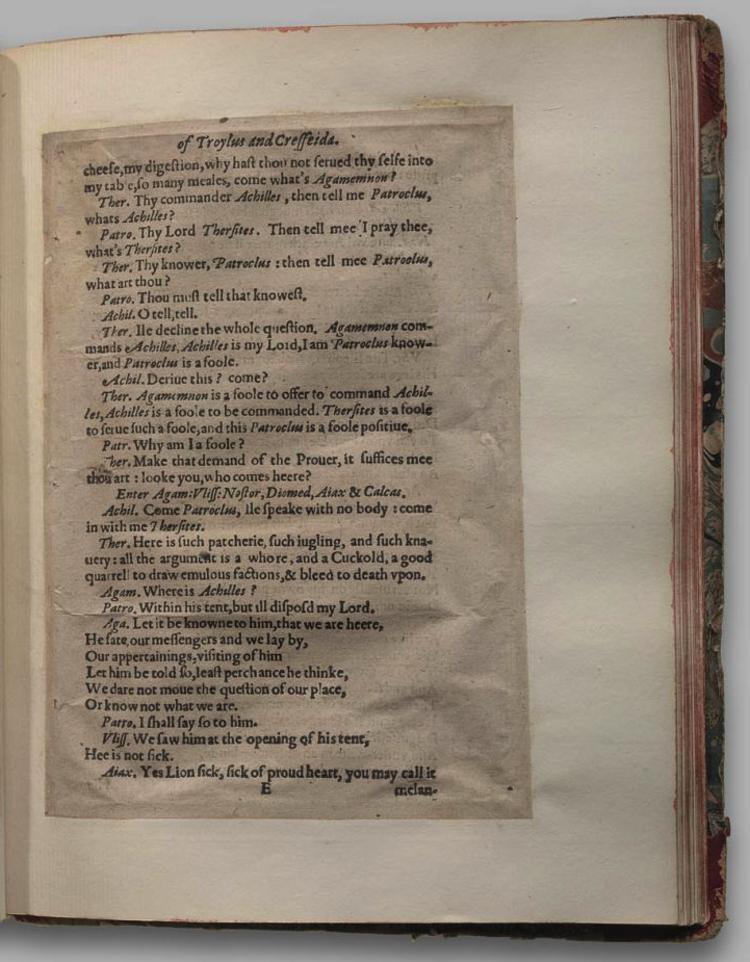 of Troylus and Cresseida.
cheeſe,my digeſtion,why haſt thou not ſerued thy ſelfe into
my tab e,ſo many meales, come what's Agamemnon?
Ther. Thy commander Achilles, then tell me Patroclus,
whats Achilles?
Patro. Thy Lord Therſites. Then tell mee I pray thee,
what's Therſites?
Ther. Thy knower, Patroclus : then tell mee Patroclus,
what art thou?
Patro. Thou muſt tell that knoweſt.
Achil. O tell,tell.
Ther. Ile decline the whole queſtion. Agamemnon com-
mands Achilles, Achilles is my Lord,I am Patroclus know-
er,and Patroclus is a foole.
Achil. Deriue this? come?
Ther. Agamemnon is a foole to offer to command Achil-
les,Achilles is a foole to be commanded. Therſites is a foole
to ſerue ſuch a foole,and this Patroclus is a foole poſitiue,
Patr. Why am I a foole?
Ther. Make that demand of the Prouer, it ſuffices mee
thou art : looke you,who comes heere?
Enter Agam:Vliſſ: Neſtor, Diomed, Aiax & Calcas.
Achil. Come Patroclus, Ile ſpeake with no body : come
in with me Therſites.
Ther. Here is ſuch patcherie, ſuch iugling, and ſuch kna-
uery : all the argument is a whore, and a Cuckold, a good
quarrell to draw emulous factions,& bleed to death vpon.
Agam. Where is Achilles?
Patro. Within his tent,but ill diſpoſd my Lord.
Aga. Let it be knowne to him,that we are heere,
He ſate,our meſſengers and we lay by,
Our appertainings,viſiting of him
Let him be told ſo,leaſt perchance he thinke,
We dare not moue the queſtion of our place,
Or know not what we are.
Patro. I ſhall ſay ſo to him.
Vliſſ. We ſaw him at the opening of his tent,
Hee is not ſick.
Aiax. Yes Lion ſick, ſick of proud heart, you may call it
E melan-